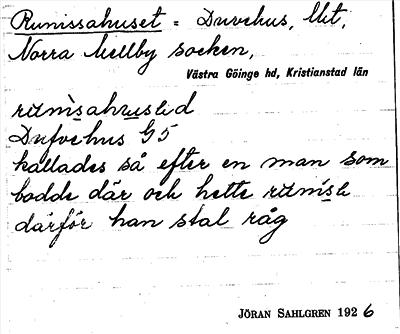 Runissahuset = Duvehus, Mit,
Norra Mellby socken,
Västra Göinge hd, Kristianstad län
Dufvehus G5
kallades så efter en man som
bodde där och hette
därför han stal råg
JÖRAN SAHLGREN 1926